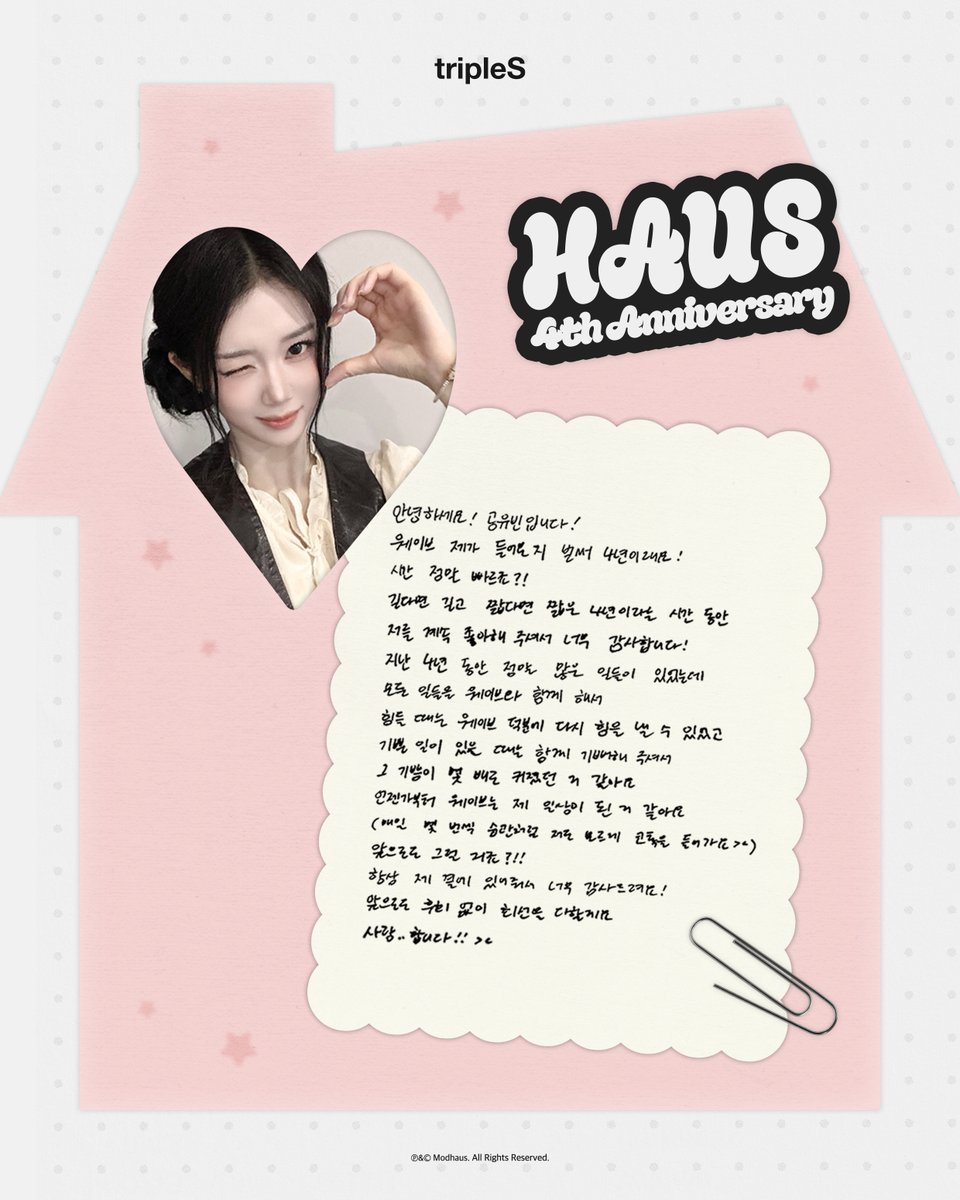 tripleS
HAUS
4th Anniversary
안녕하세요! 공유빈입니다!
웨이브 제가 들어온지 벌써 4년이래요!
시간 정말 빠르죠?!
길다면 길고 짧다면 짧은 4년이라는 시간 동안
저를 계속 좋아해 주셔서 너무 감사합니다!
지난 4년 동안 정말 많은 일들이 있었는데
모든 일들을 웨이브와 함께 해서
힘들 때는 웨이브 덕분에 다시 힘을 낼 수 있었고
기쁠 일이 있을 때는 함께 기뻐해 주셔서
그 기쁨이 몇 배로 커졌던 거 같아요
언젠가부터 웨이브는 제 일상이 된 거 같아요
(매일 몇 번씩 습관처럼 저도 모르게 코톡을 들어가요 >~)
앞으로도 그럴 거죠?!!
항상 제 곁에 있어줘서 너무 감사드려요!
앞으로도 후회 없이 최선을 다할게요
사랑..합니다!! >~
℗&© Modhaus. All Rights Reserved.